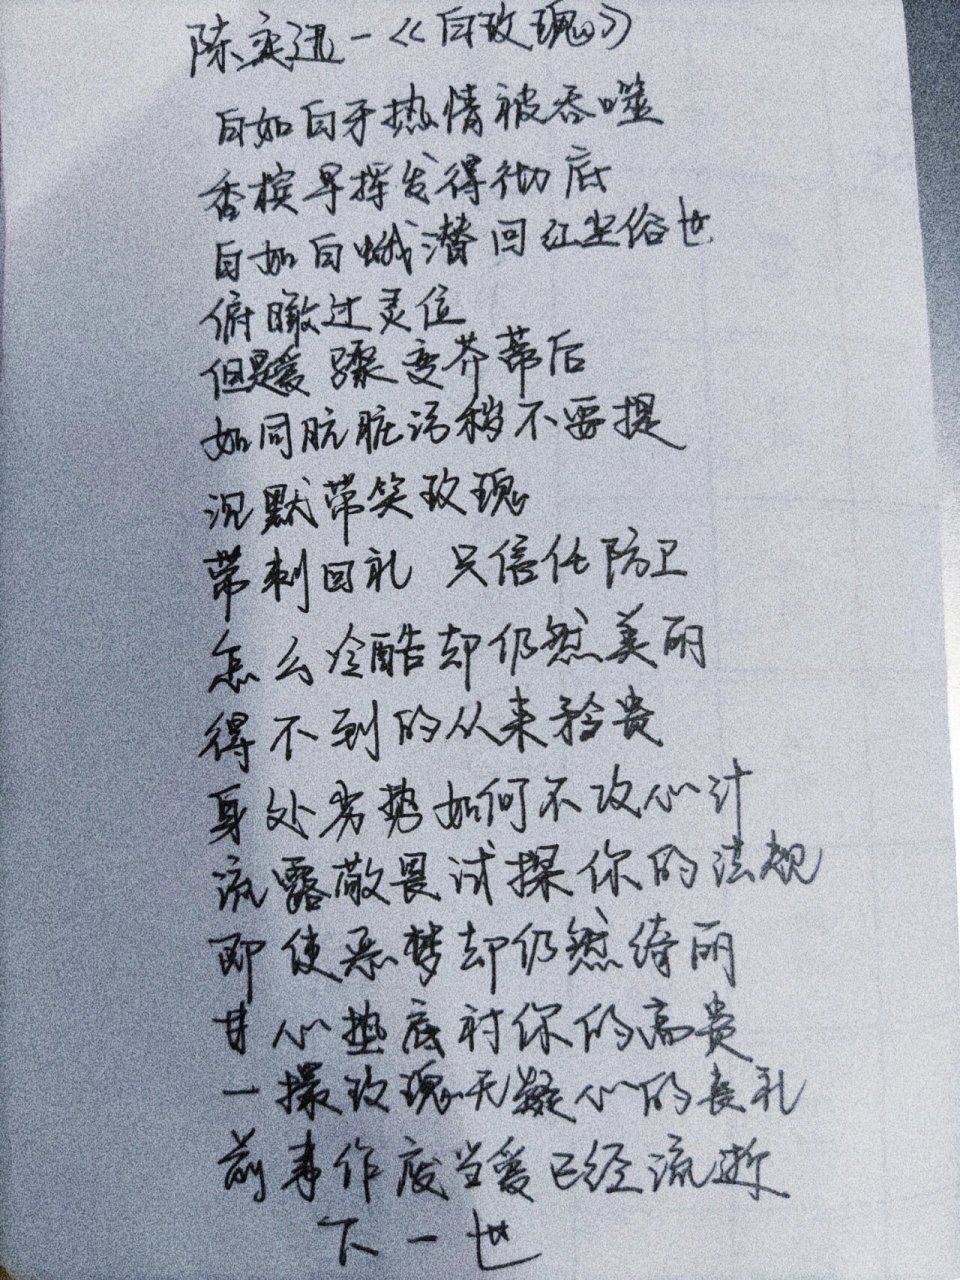 陈奕迅-《白玫瑰》
白如白牙热情被吞噬
香槟早挥发得彻底
白如白蛾潜回红尘俗世
俯瞰过灵位
但是爱骤变芥蒂后
如同肮脏污秽不要提
沉默带笑玫瑰
带刺回礼 只信任防卫
怎么冷酷却仍然美丽
得不到的从来矜贵
身处劣势如何不攻心计
流露敬畏试探你的法规
即使恶梦却仍然绮丽
甘心垫底衬你的高贵
一撮玫瑰无疑心的丧礼
前事作废当爱已经流逝
下一世